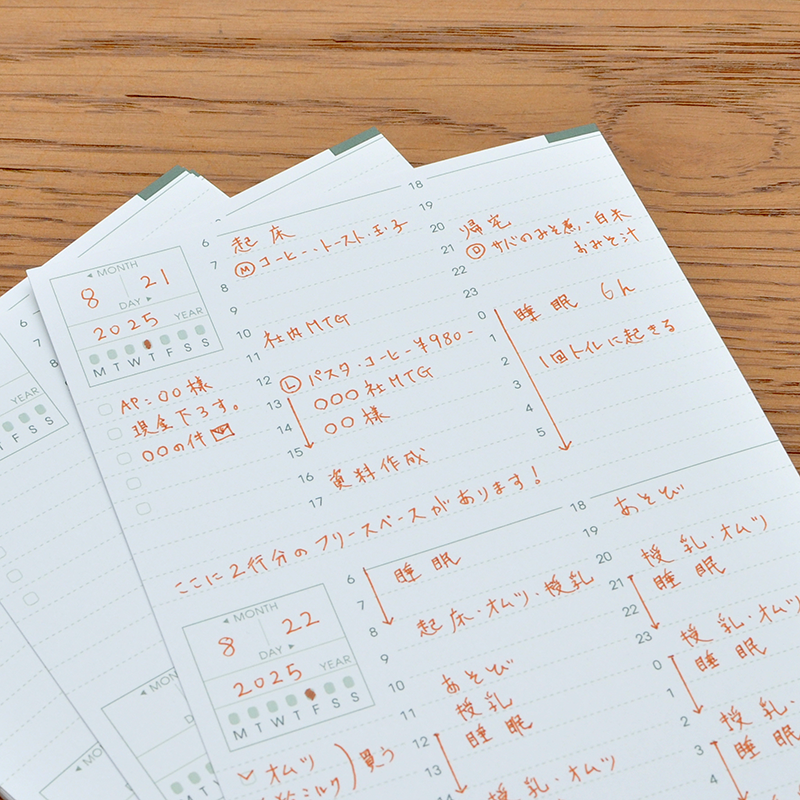 ◀ MONTH
8 21
DAY ▶
2025 YEAR
M T W T F S S
AP:〇〇様
現金下ろす。
〇〇の件
6 起床
7 Ⓜコーヒー・トースト・玉子
8
9
10 社内MTG
11
12 Ⓛパスタ・コーヒー¥980-
13 〇〇〇社MTG
14 〇〇様
15
16 資料作成
17
18
19
20 帰宅
21 Ⓓサバのみそ煮・白米
22 おみそ汁
23
0 睡眠 6h
1
2 1回トイレに起きる
3
4
5
ここに2行分のフリースペースがあります!
◀ MONTH
8 22
DAY ▶
2025 YEAR
M T W T F S S
オムツ
ミルク)買う
6 睡眠
7
8 起床・オムツ・授乳
9
10 あそび
11 授乳
12 睡眠
13
14 授乳・オムツ
18 あそび
19
20 授乳・オムツ
21 睡眠
22
23 授乳・オムツ
0 睡眠
1
2 授乳・
3 睡眠
4
YEAR
F S S
6
7
8
9
10
11
12
13
14
◀ MONTH
DAY
M T
MONTH